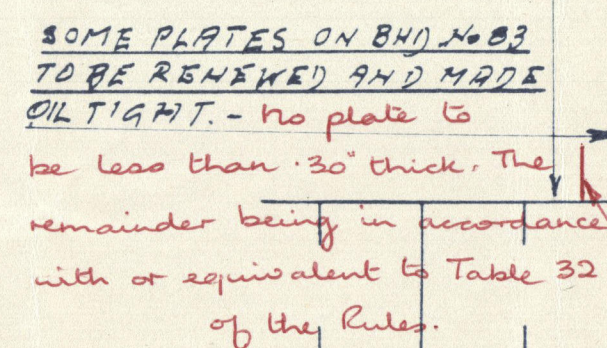 SOME PLATES ON BHD No 83
TO BE RENEWED AND MADE
OIL TIGHT. - No plate to
be less than .30" thick. The
remainder being in accordance
with or equivalent to Table 32
of the Rules.